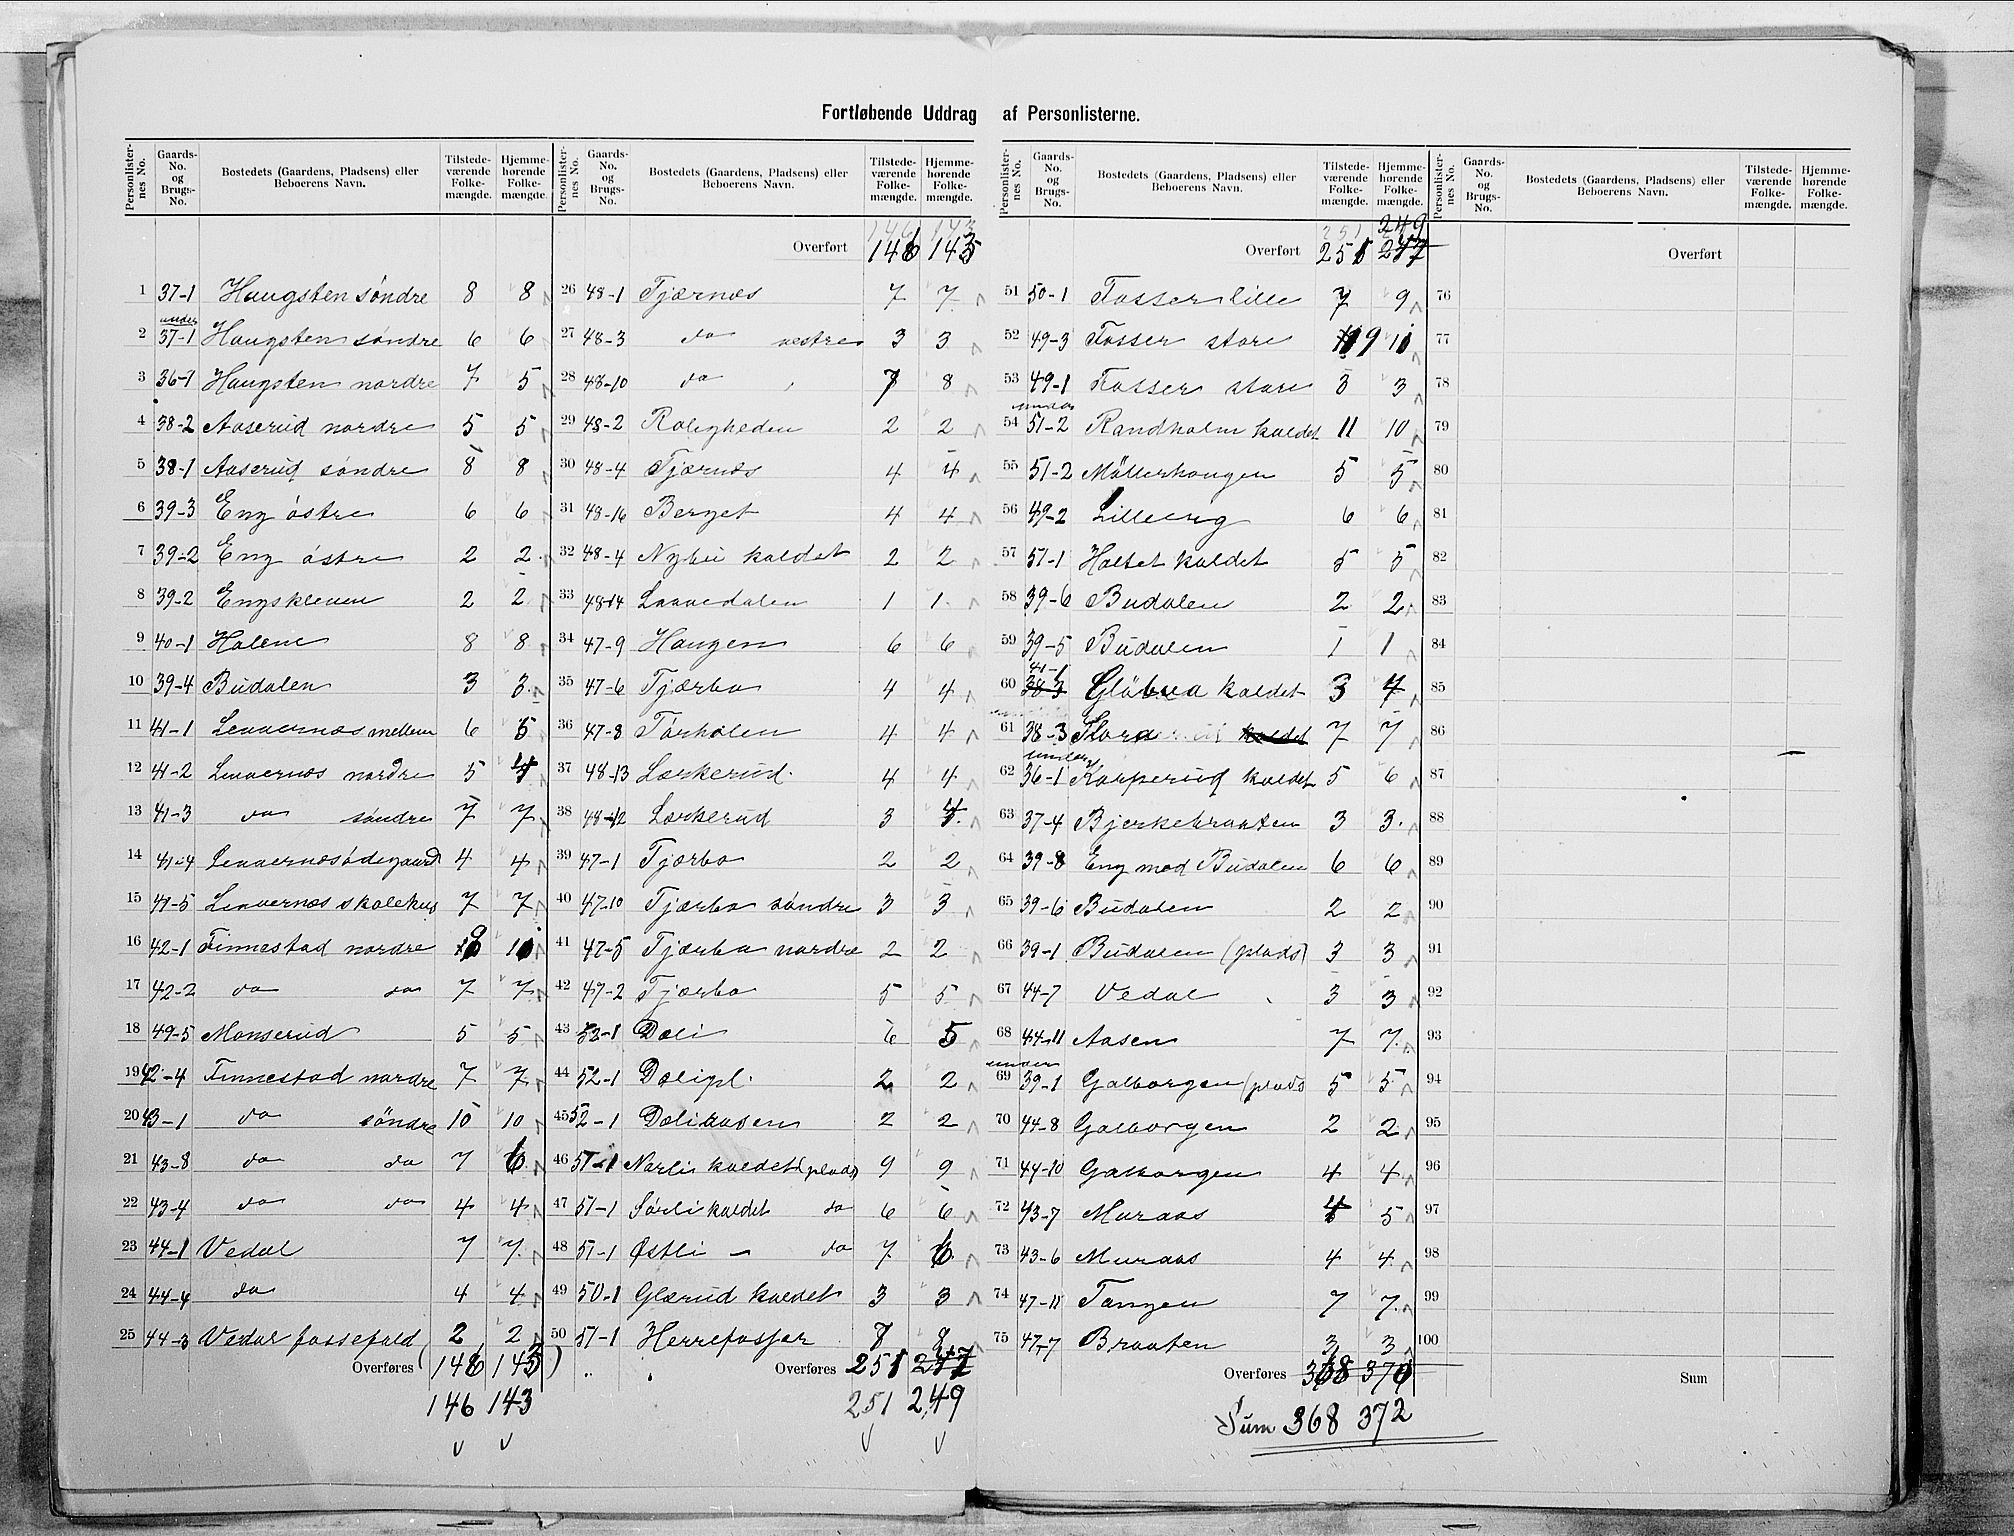 Fortløbende Uddrag af Personlisterne.
Personlister-nes No. Gaards-No. og Brugs-No. Bostedets (Gaardens, Pladsens) eller Beboerens Navn. Tilstede-værende Folke-mængde. Hjemme-hørende Folke-mængde.
1 37-1 Haugsten søndre 8 8
2 under 37-1 Haugsten søndre 6 6
3 36-1 Haugsten nordre 7 5
4 38-2 Aaserud nordre 5 5
5 38-1 Aaserud søndre 8 8
6 39-3 Eng østre 6 6
7 39-2 Eng østre 2 2
8 39-2 Engskleven 2 2
9 40-1 Holene 8 8
10 39-4 Budalen 3 3
11 41-1 Levernæs mellem 6 5
12 41-2 Levernæs nordre 5 4
13 41-3 do søndre 7 7
14 41-4 Levernæsødegaard 4 4
15 41-5 Levernæs skolehus 7 7
16 42-1 Finnestad nordre 9 10
17 42-2 do do 7 7
18 49-5 Monserud 5 5
19 42-4 Finnestad nordre 7 7
20 43-1 do søndre 10 10
21 43-8 do do 7 6
22 43-4 do do 4 4
23 44-1 Vedal 7 7
24 44-4 do 4 4
25 44-3 Vedal fossefald 2 2
Overføres (146 143)
146 143
Personlister-nes No. Gaards-No. og Brugs-No. Bostedets (Gaardens, Pladsens) eller Beboerens Navn. Tilstede-værende Folke-mængde. Hjemme-hørende Folke-mængde.
146 143
Overført 146 143
26 48-1 Tjærnæs 7 7
27 48-3 do vestre 3 3
28 48-10 do 7 8
29 48-2 Roligheden 2 2
30 48-4 Tjærnæs 4 4
31 48-16 Berget 4 4
32 48-4 Nybu kaldet 2 2
33 48-14 Laavedalen 1 1
34 47-9 Haugen 6 6
35 47-6 Tjærbo 4 4
36 47-8 Torholen 4 4
37 48-13 Lærkerud. 4 4
38 48-12 Lærkerud 3 4
39 47-1 Tjærbo 2 2
40 47-10 Tjærbo søndre 3 3
41 47-5 Tjærbo nordre 2 2
42 47-2 Tjærbo 5 5
43 52-1 Dæli 6 5
44 52-1 Dælipl. 2 2
45 52-1 Dæliaasen 2 2
46 51-1 Nærli kaldet (plads) 9 9
47 51-1 Sørli kaldet do 6 6
48 51-1 Østli - do 7 6
49 50-1 Glærud kaldet 3 3
50 51-1 Herrefosser 7 8
Overføres 251 247
251 249
Personlister-nes No. Gaards-No. og Brugs-No. Bostedets (Gaardens, Pladsens) eller Beboerens Navn. Tilstede-værende Folke-mængde. Hjemme-hørende Folke-mængde.
251 249
Overført 251 247
51 50-1 Fosser lille 7 9
52 49-3 Fosser store 9 10
53 49-1 Fosser store 3 3
54 under 51-2 Randholm kaldet 11 10
55 51-2 Möllerhaugen 5 5
56 49-2 Lilleeng 6 6
57 51-1 Holtet kaldet 5 5
58 39-6 Budalen 2 2
59 39-5 Budalen 1 1
60 41-1 38-3 Glöbua kaldet 3 4
61 38-3 kaldet 7 7
62 under 36-1 Korperud kaldet 5 6
63 37-4 Bjerkebraaten 3 3
64 39-8 Eng med Budalen 6 6
65 39-6 Budalen 2 2
66 39-1 Budalen (plads) 3 3
67 44-7 Vedal 3 3
68 44-11 Aasen 7 7
69 under 39-1 Galborgen (plads 5 5
70 44-8 Galborgen 2 2
71 44-10 Galborgen 4 4
72 43-7 Muraas 4 5
73 43-6 Muraas 4 4
74 47-11 Tangen 7 7
75 47-7 Braaten 3 3
Overføres 368 370
Sum 368 372
Personlister-nes No. Gaards-No. og Brugs-No. Bostedets (Gaardens, Pladsens) eller Beboerens Navn. Tilstede-værende Folke-mængde. Hjemme-hørende Folke-mængde.
Overført
76
77
78
79
80
81
82
83
84
85
86
87
88
89
90
91
92
93
94
95
96
97
98
99
100
Sum